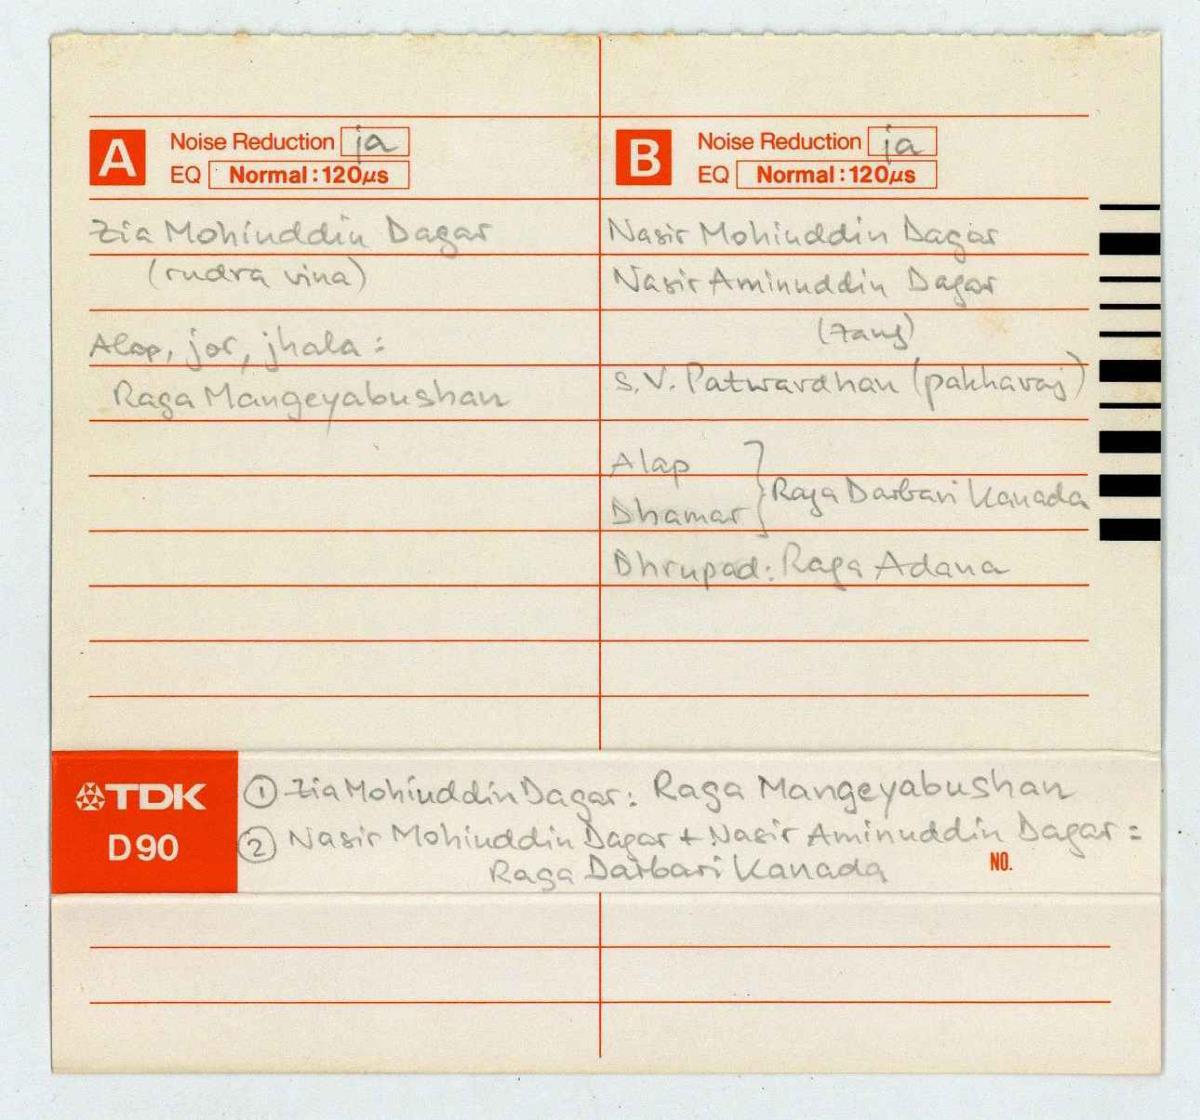 A
Noise Reduction ja
EQ Normal : 120µs
Zia Mohiuddin Dagar
(rudra vina)
Alap, jor, jhala :
Raga Mangeyabushan
B
Noise Reduction ja
EQ Normal : 120µs
Nasir Mohiuddin Dagar
Nasir Aminuddin Dagar
(zang)
S.V. Patwardhan (pakhavaj)
Alap
Dhamar } Raga Darbari Kanada
Dhrupad: Raga Adana
TDK
D90
① Zia Mohiuddin Dagar: Raga Mangeyabushan
② Nasir Mohiuddin Dagar + Nasir Aminuddin Dagar :
Raga Darbari Kanada
NO.